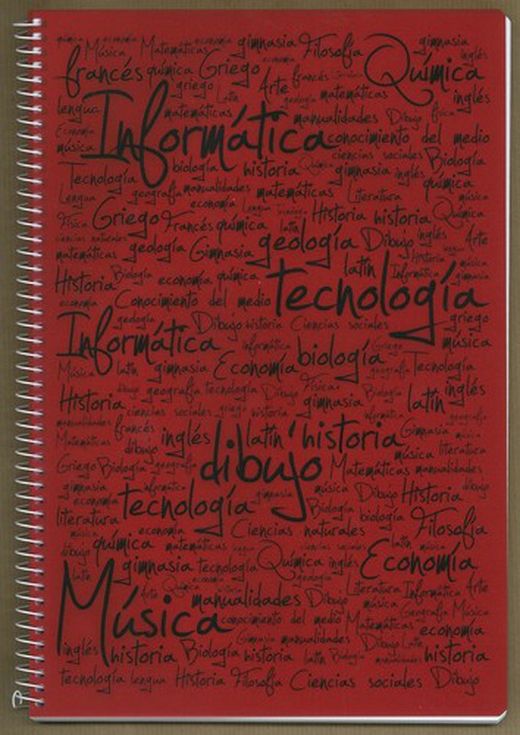 química Música Matemáticas economía gimnasia Filosofía gimnasia inglés
francés química Griego Química
griego Arte francés
lengua Latín geología matemáticas inglés
Informática matemáticas manualidades Dibujo física
Economía música conocimiento del medio
ciencias sociales Biología
Tecnología biología historia Química gimnasia inglés química
Lengua geografía manualidades matemáticas Literatura música
economía Lengua
Física Griego Francés química latín Historia historia Química
ciencias naturales geología Dibujo inglés Arte
matemáticas geología Gimnasia Historia música
Historia Biología economía química latín Informática gimnasia
economía Conocimiento del medio tecnología
geología Dibujo historia Ciencias sociales griego
Informática informática Griego música
Música latín gimnasia Economía biología geografía Tecnología
dibujo geografía tecnología Dibujo Física Biología latín inglés
Historia ciencias sociales griego historia gimnasia informática geografía
música francés Gimnasia música
Matemáticas dibujo inglés latín historia música literatura
Griego Biología geografía dibujo Matemáticas manualidades
gimnasia informática
economía tecnología gimnasia música Dibujo Historia dibujo
literatura Biología biología Filosofía
música economía Ciencias naturales
dibujo química matemáticas latín música
gimnasia tecnología Química inglés Economía
latín geología
Arte Química Literatura Informática Arte
Música manualidades Dibujo música Geografía Música
conocimiento del medio Matemáticas economía
Gimnasia manualidades Dibujo Latín
inglés historia Biología historia latín Biología manualidades historia
tecnología lengua Historia Filosofía Ciencias sociales Dibujo